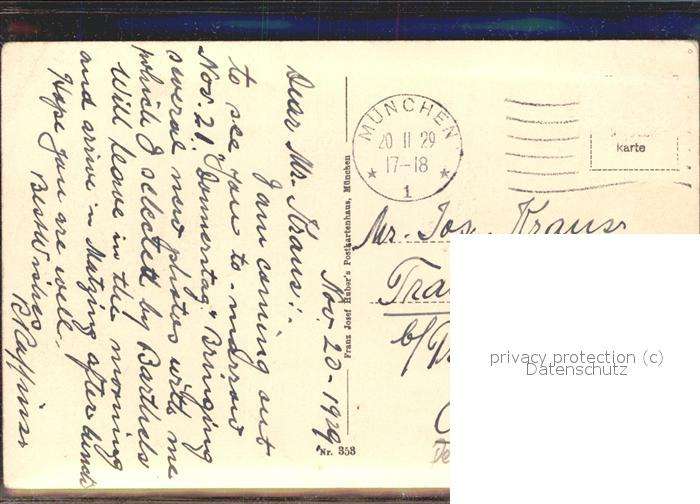 Nov. 20-1929.
Dear Mr. Kraus:-
I am coming out
to see you to-morrow
Nov. 21, Donnerstag. Bringing
several new photos with me
which I selected by Barthels
Will leave in the morning
and arrive in Matzing after lunch
Hope you are well.
Best Wishes
Franz Josef Huber's Postkartenhaus, München
Nr. 353
MÜNCHEN
20 11 29
17-18
* 1 *
karte
Mr. Jos. Kraus
Tra
b/
privacy protection (c)
Datenschutz